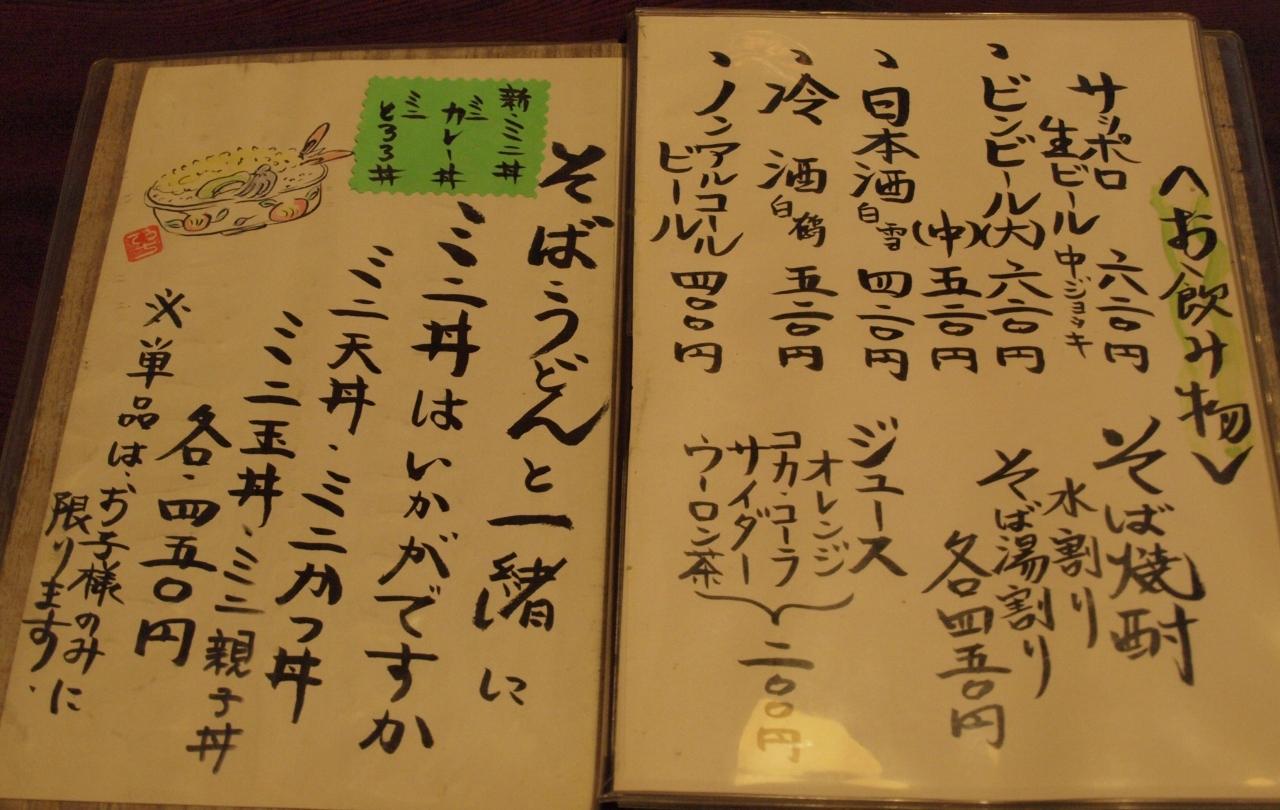 〈お飲み物〉
サッポロ
生ビール 六二〇円
中ジョッキ
、ビンビール(大)六二〇円
(中)五二〇円
、日本酒 白雪 四二〇円
、冷酒 白鶴 五二〇円
、ノンアルコール
ビール 四〇〇円
そば焼酎
水割り
そば湯割り
各四五〇円
ジュース
オレンジ
コカ・コーラ
サイダー
ウーロン茶
二〇〇円
そば・うどんと一緒に
ミニ丼はいかがですか
ミニ天丼・ミニカツ丼
ミニ玉丼・ミニ親子丼
各・四五〇円
※単品は・お子様のみに
限ります・
新・ミニ丼
ミニカレー丼
ミニとろろ丼